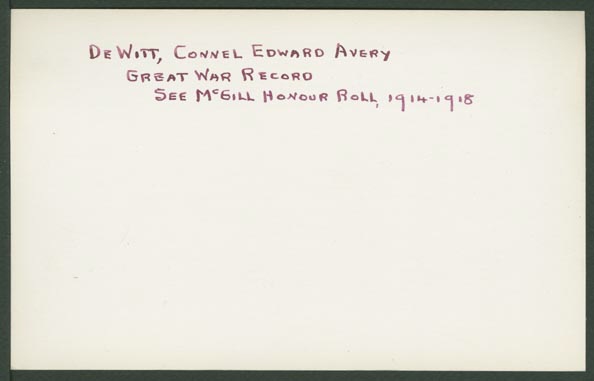 DeWitt, Connel Edward Avery
Great War Record
See McGill Honour Roll, 1914-1918